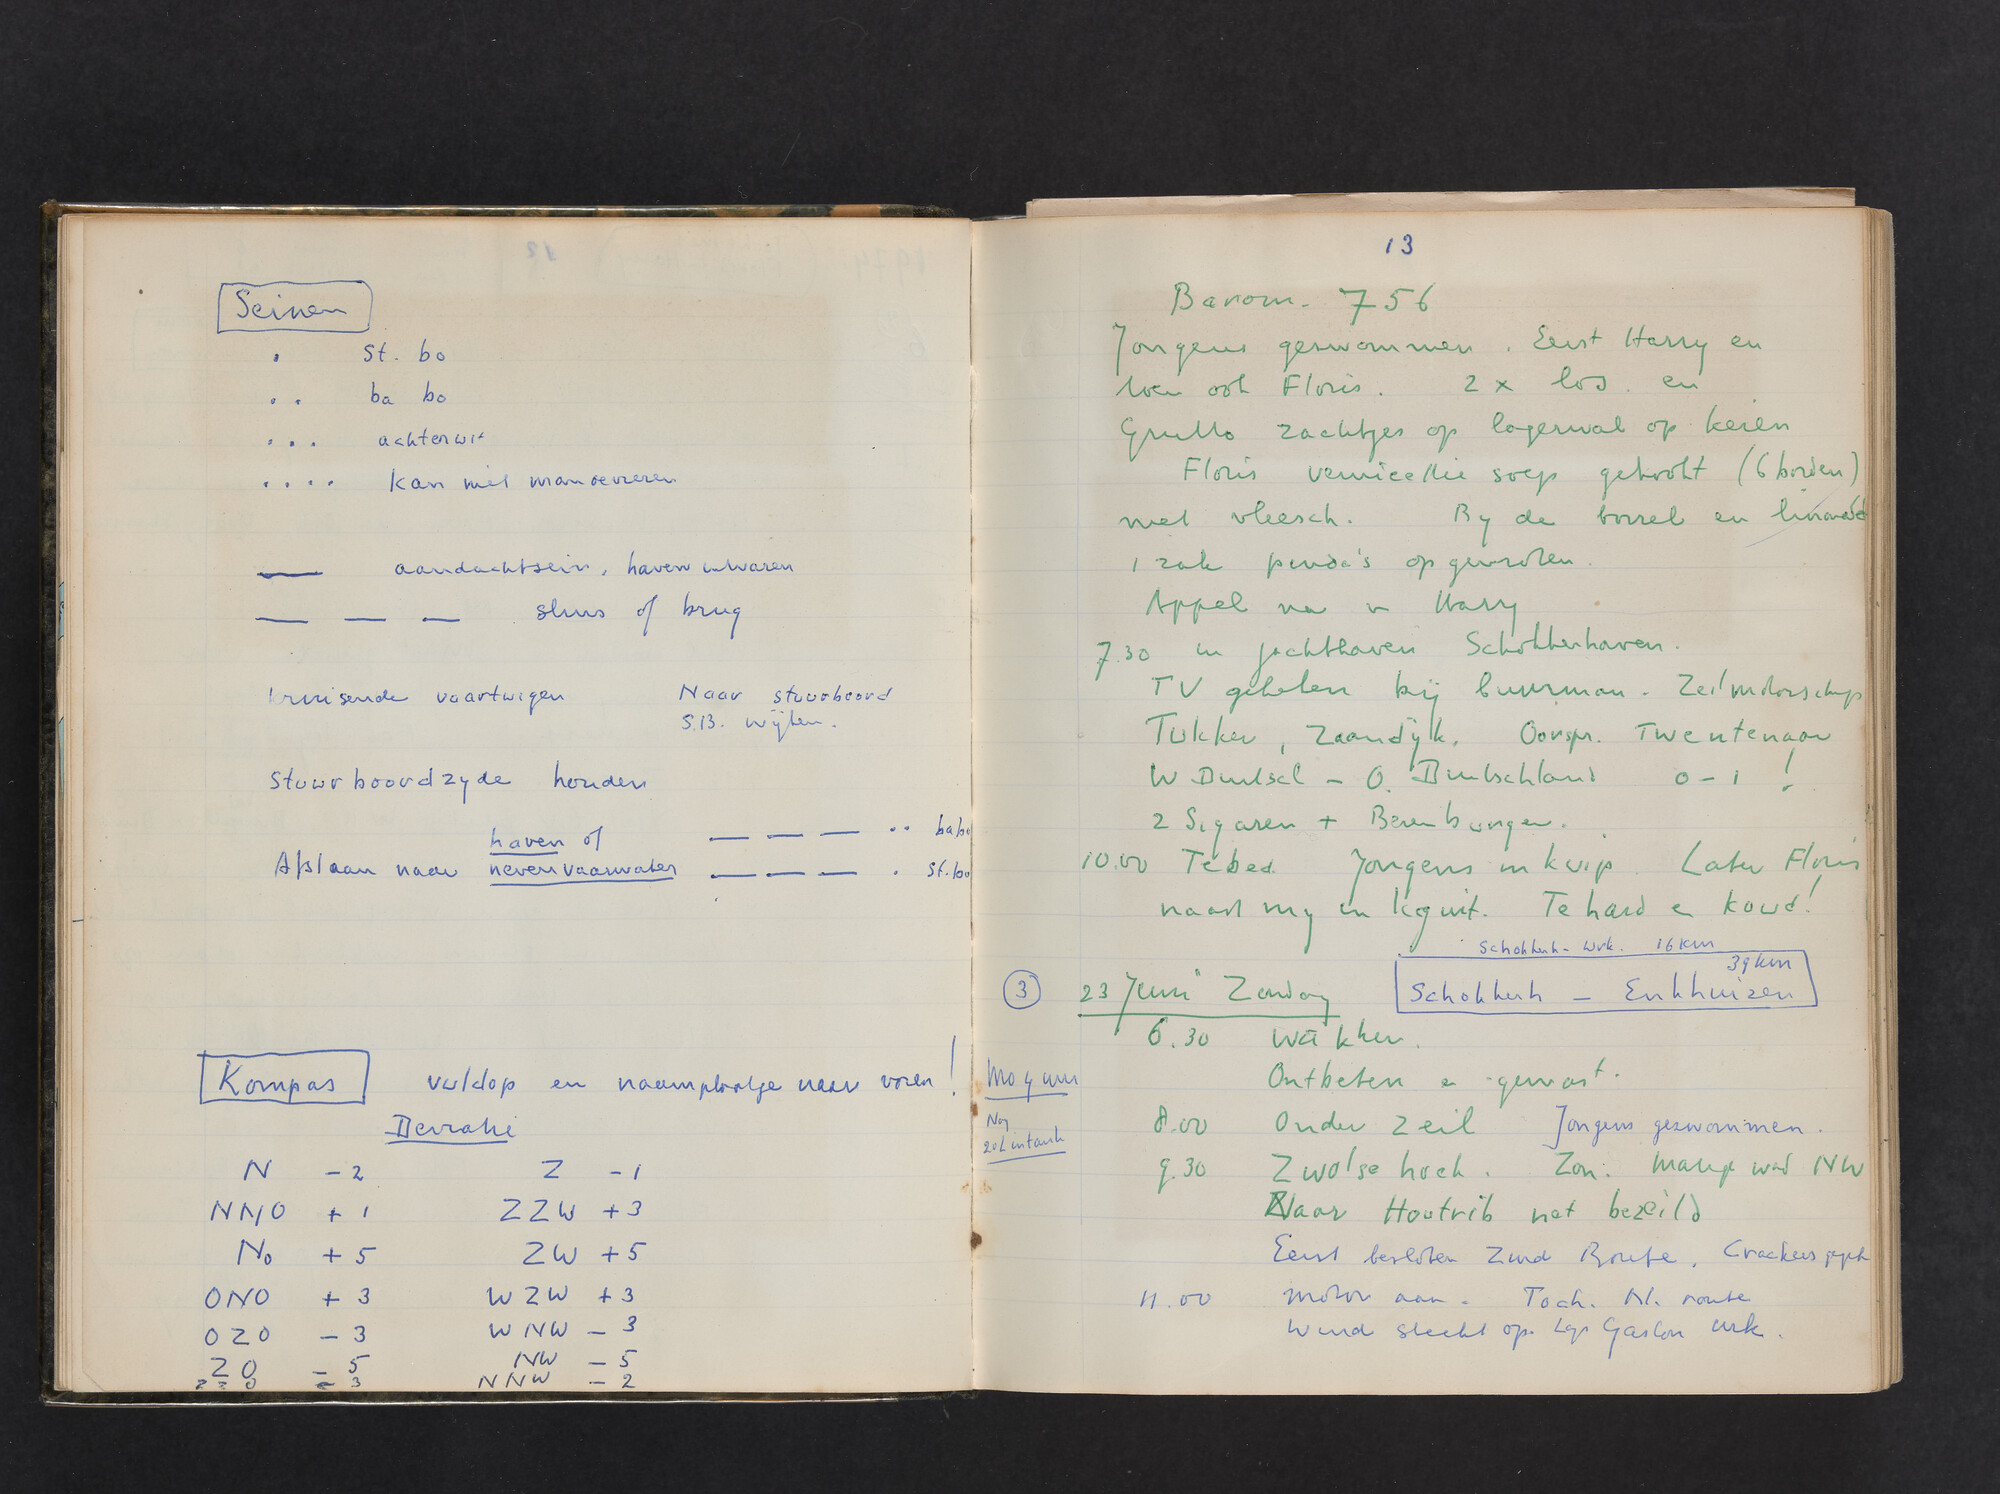 Seinen
. St. bo
. . ba bo
. . . achteruit
. . . . kan niet manoevreren
— aandachtsein, haven invaren
— — — sluis of brug
kruisende vaartuigen Naar stuurboord
S.B. wijken.
Stuurboordzyde houden
haven of — — — . . babo
Afslaan naar nevenvaarwater — — — . St. bo
Kompas vuldop en naamplaatje naar voren!
Deviatie
N - 2 Z - 1
NNO + 1 ZZW + 3
No + 5 ZW + 5
ONO + 3 WZW + 3
OZO - 3 WNW - 3
ZO - 5 NW - 5
ZZO - 3 NNW - 2
13
Barom. 756
Jongens gezwommen. Eerst Harry en
toen ook Floris. 2 x los. en
Grutto zachtjes op lagerwal op keien
Floris vermicellie soep gekookt (6 borden)
met vleesch. By de borrel en limonade
1 zak pinda's opgevroten.
Appel na v Harry
7.30 in jachthaven Schokkerhaven.
TV gekeken bij buurman. Zeilmotorschip
Tukker, Zaandijk. Oorspr. Twentenaar
W Duitsl - O. Duitschland 0-1!
2 Sigaren + Berenburger.
10.00 Te bed. Jongens in kuip. Later Floris
naast my in kajuit. Te hard en koud!
Schokkerh - Urk. 16 km
39 km
3 23 Juni Zondag Schokkerh - Enkhuizen
6.30 Wakker.
Ontbeten en gewast.
Mogum
8.00 Onder zeil Jongens gezwommen.
Nog
20 L in tank
9.30 Zwolse hoek. Zon. Matige wind NW
Naar Houtrib net bezeild
Eerst besloten Zuid Route. Crackers
11.00 motor aan. Toch. N. route
Wind slecht op. Urk.